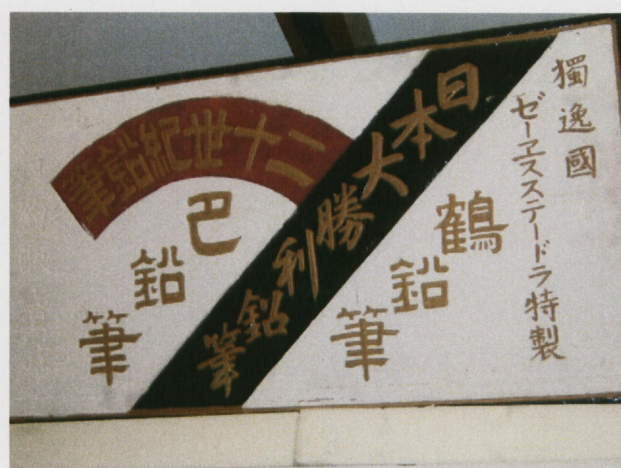 獨逸國
ゼーヱスステードラ特製
鶴鉛筆
日本大勝利鉛筆
二十世紀鉛筆
巴鉛筆